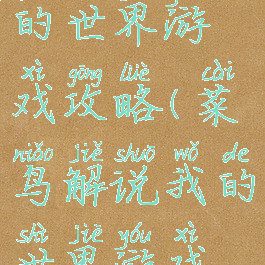 的世界游
xì gōng lüè cài
戏攻略(菜
niǎo jiě shuō wǒ de
鸟解说我的
shì jiè yóu xì
世界游戏